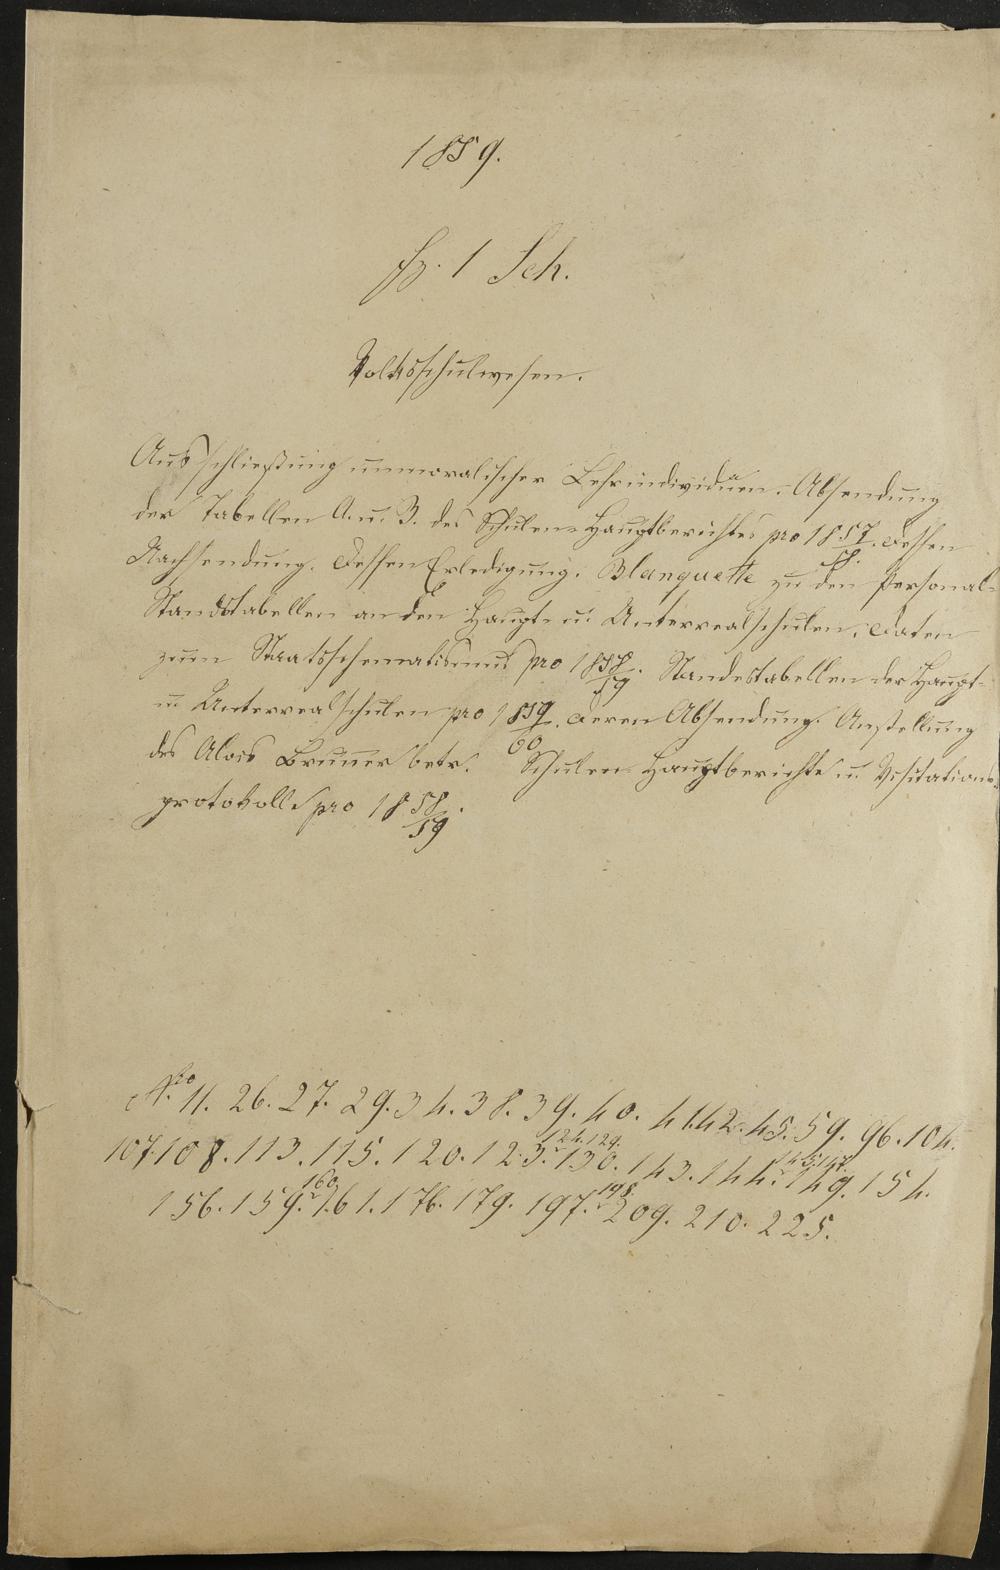 1859.
Fz. 1 Sch.
Volksschulwesen.
Ausschließung unmoralischer Lehrindividuen. Absendung
der Tabellen A. u. B. des Schulen-Hauptberichtes pro 1857/58. Dessen
Nachsendung. Dessen Erledigung. Blanquette zu den Personal-
Standstabellen an den Haupt- u. Unterrealschulen. Daten
zum Staatsschematismus pro 1858/59. Standestabellen der Haupt-
u. Unterrealschulen pro 1859/60. Deren Absendung. Anstellung
des Alois Brunner betr. Schulen-Hauptberichte u. Visitations-
protokolle pro 1858/59.
Nro 11. 26. 27. 29. 34. 38. 39. 40. 41. 42. 45. 59. 96. 104.
107. 108. 113. 115. 120. 123. 124. 129. 130. 143. 144. 145. 147. 149. 154.
156. 159. 160. 161. 176. 179. 197. 198. 209. 210. 225.